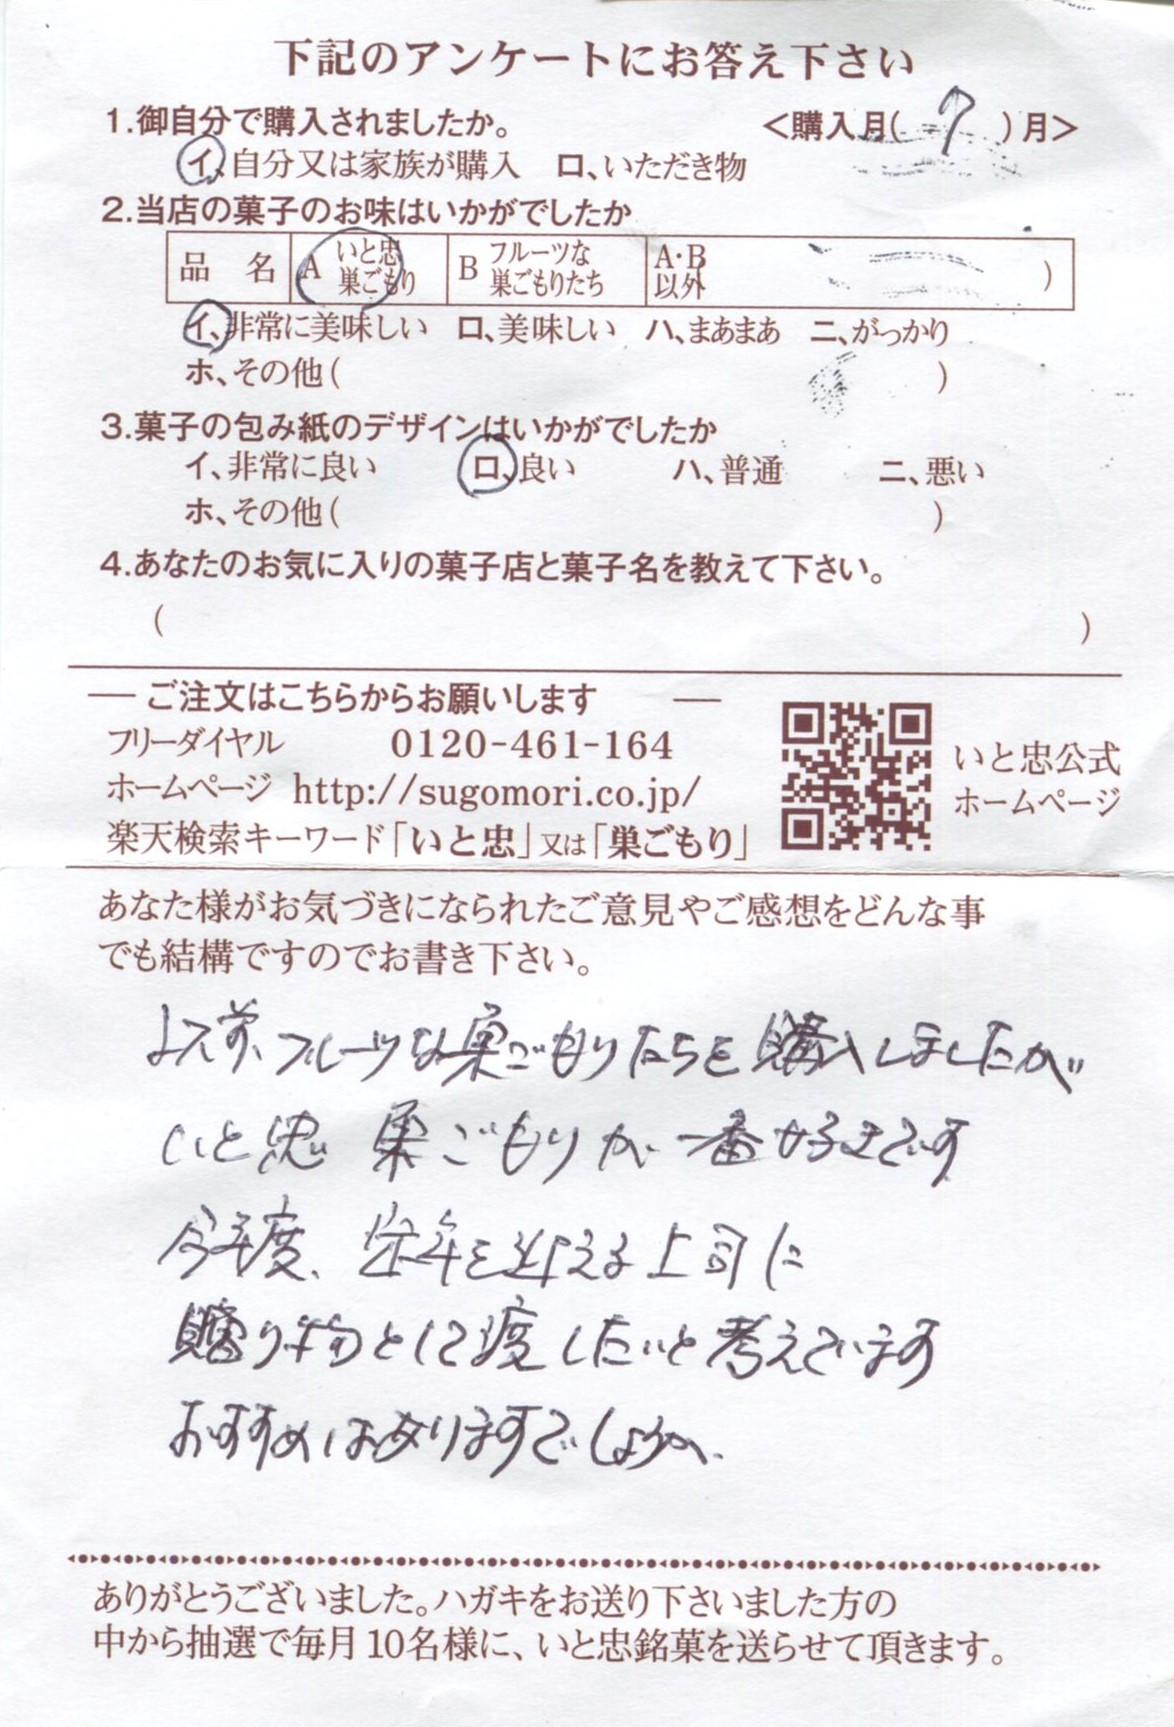 下記のアンケートにお答え下さい
1.御自分で購入されましたか。 <購入月( 7 )月>
イ、自分又は家族が購入 ロ、いただき物
2.当店の菓子のお味はいかがでしたか
品 名 A いと忠 巣ごもり B フルーツな 巣ごもりたち A·B 以外 )
イ、非常に美味しい ロ、美味しい ハ、まあまあ ニ、がっかり
ホ、その他( )
3.菓子の包み紙のデザインはいかがでしたか
イ、非常に良い ロ、良い ハ、普通 ニ、悪い
ホ、その他( )
4.あなたのお気に入りの菓子店と菓子名を教えて下さい。
( )
― ご注文はこちらからお願いします ―
フリーダイヤル 0120-461-164
ホームページ http://sugomori.co.jp/
楽天検索キーワード「いと忠」又は「巣ごもり」
いと忠公式
ホームページ
あなた様がお気づきになられたご意見やご感想をどんな事
でも結構ですのでお書き下さい。
以前、フルーツな巣ごもりたちを購入しましたが
いと忠 巣ごもりが一番好きです
今年度、定年を迎える上司に
贈り物として渡したいと考えています
おすすめはありますでしょうか、
ありがとうございました。ハガキをお送り下さいました方の
中から抽選で毎月10名様に、いと忠銘菓を送らせて頂きます。